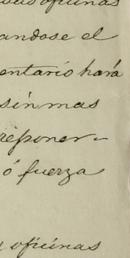 oficinas
andose el
entario hará
sin mas
reponer-
ó fuerza
oficinas